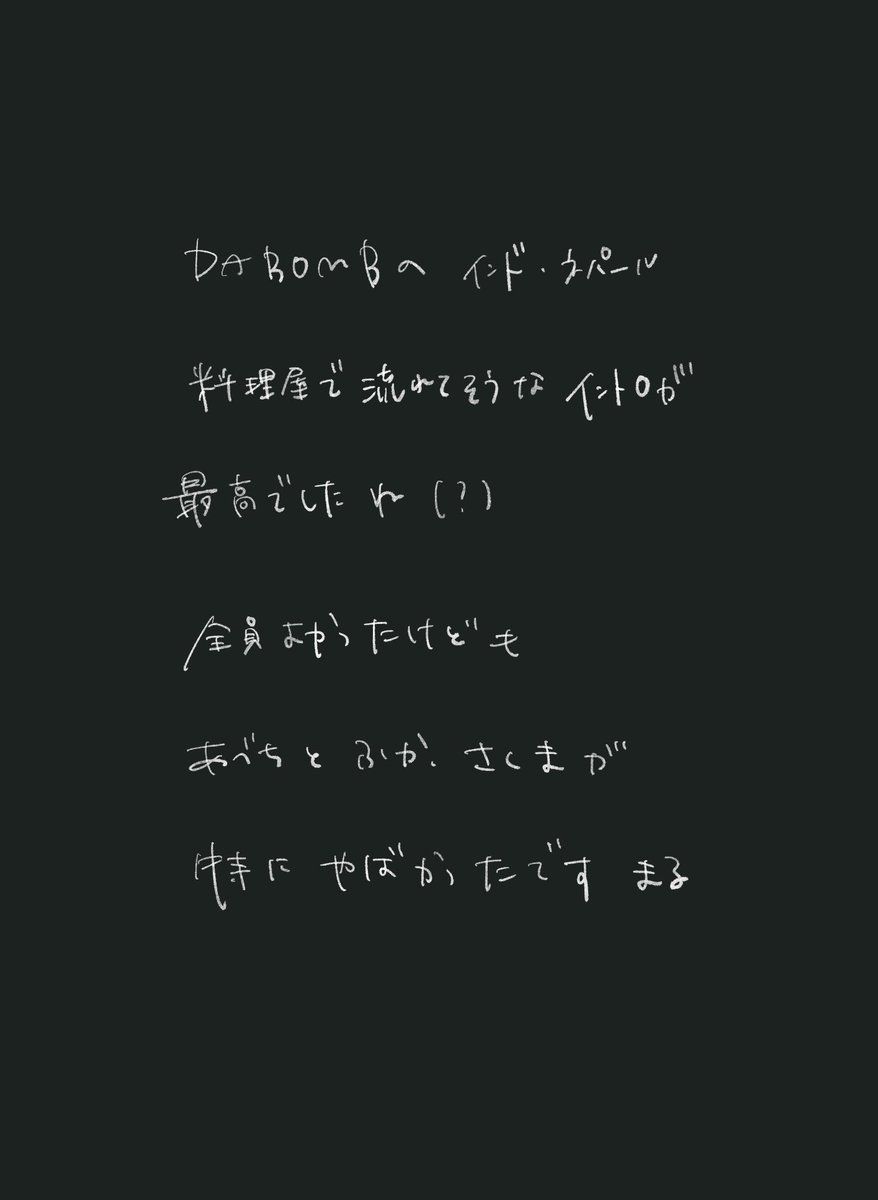 DA BOMBの インド・ネパール
料理屋で流れてそうな イントロが
最高でしたね(?)
全員よかったけども
あべちとふか、さくまが
特にやばかったです まる